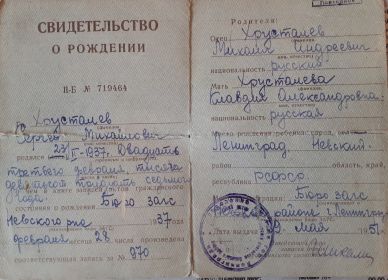 СВИДЕТЕЛЬСТВО
О РОЖДЕНИИ
II-Б № 719464
Хрусталев
Сергей Михайлович
родился 23/II-1937. Двадцать
третьего февраля, тысяча
девятьсот тридцать седьмого
состояния о рождении Бюро загс
Невского р-на 1937
февраля 28 числа произведена
соответствующая запись за № 970
Повторное
Родители:
Отец Хрусталев
Михаил Андреевич
национальность русский
Мать Хрусталева
Клавдия Александровна
национальность русская
Место рождения ребенка: город,
Ленинград Невский
район область, край,
республика РСФСР
Бюро загс
районе г. Ленинград
Дата выдачи 9 мая 195